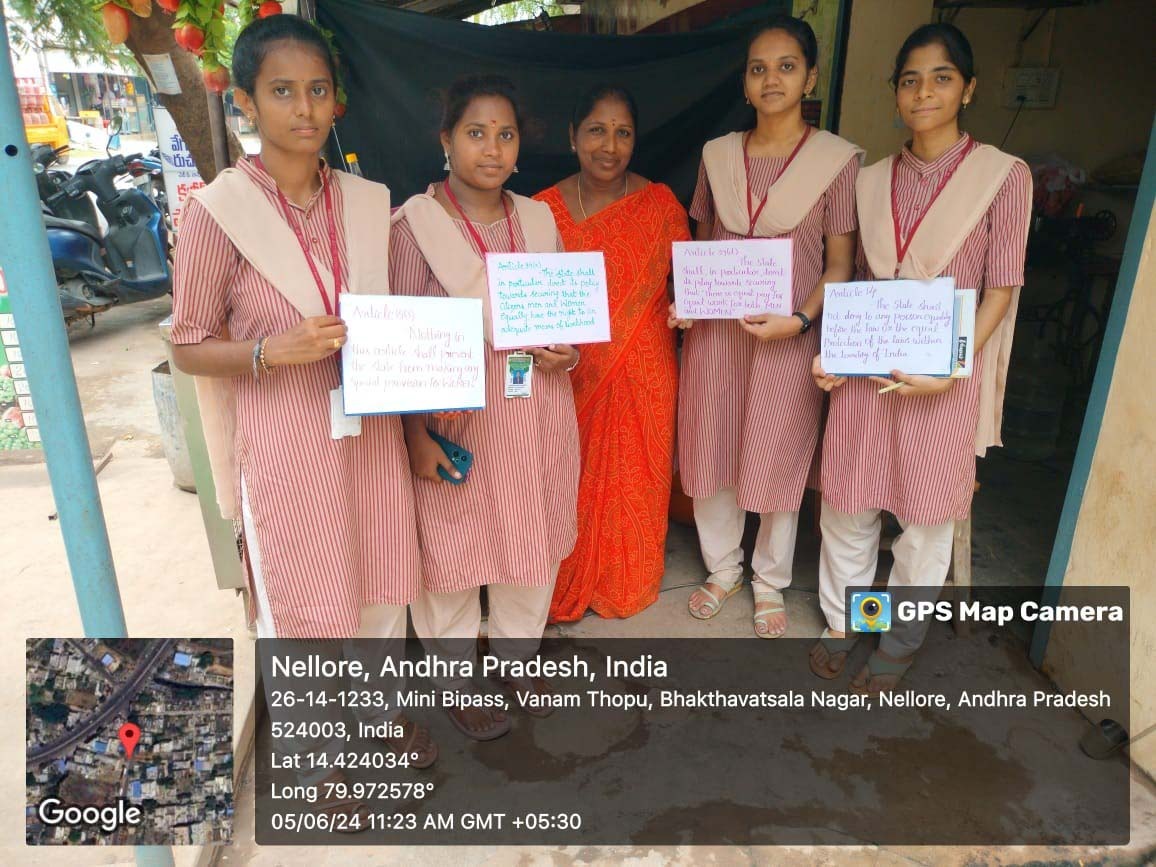 వేగ
రుచు
Article 15(3)
Nothing in
this article shall prevent
the state from making any
special provision for WOMEN
Article 39(a)
The state shall
in particular direct its policy
towards securing that the
citizens men and Women
Equally have the right to an
adequate means of livelihood
Article 39(d)
The state
shall, in particular direct
its policy towards securing
that There is equal pay for
Equal work for both "MEN
and WOMEN"
Article 14
The State shall
not deny to any person equality
before the law or the equal
Protection of the laws within
the teritory of India
GPS Map Camera
Nellore, Andhra Pradesh, India
26-14-1233, Mini Bipass, Vanam Thopu, Bhakthavatsala Nagar, Nellore, Andhra Pradesh
524003, India
Lat 14.424034°
Long 79.972578°
05/06/24 11:23 AM GMT +05:30
Google